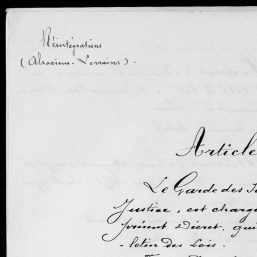 Réintégrations
(Alsaciens-Lorrains).
Article
Le Garde des
Justice, est charg
présent décret, qui
-letin des Lois.